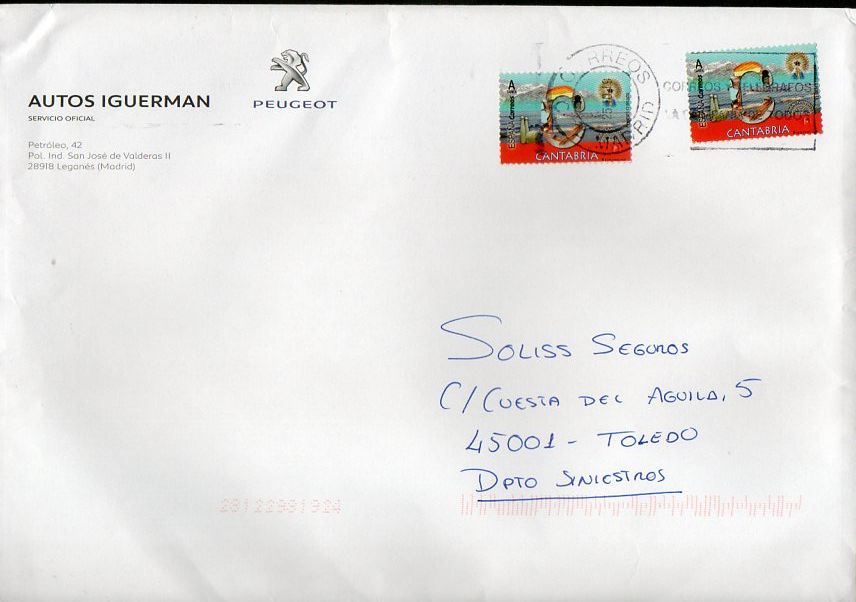 AUTOS IGUERMAN
SERVICIO OFICIAL
Petróleo, 42
Pol. Ind. San José de Valderas II
28918 Leganés (Madrid)
PEUGEOT
A
ESPAÑA Correos
CANTABRIA
CORREOS
MADRID
A
ESPAÑA Correos
CANTABRIA
CORREOS Y TELEGRAFOS
SOLISS SEGUROS
C/CUESTA DEL AGUILA, 5
45001 - TOLEDO
DPTO SINIESTROS